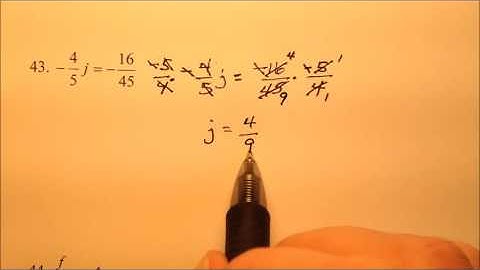 43. -4/5 j = -16/45  -5/4 · -4/5 j = -16/45 · -5/4  4 9 1 1
j = 4/9